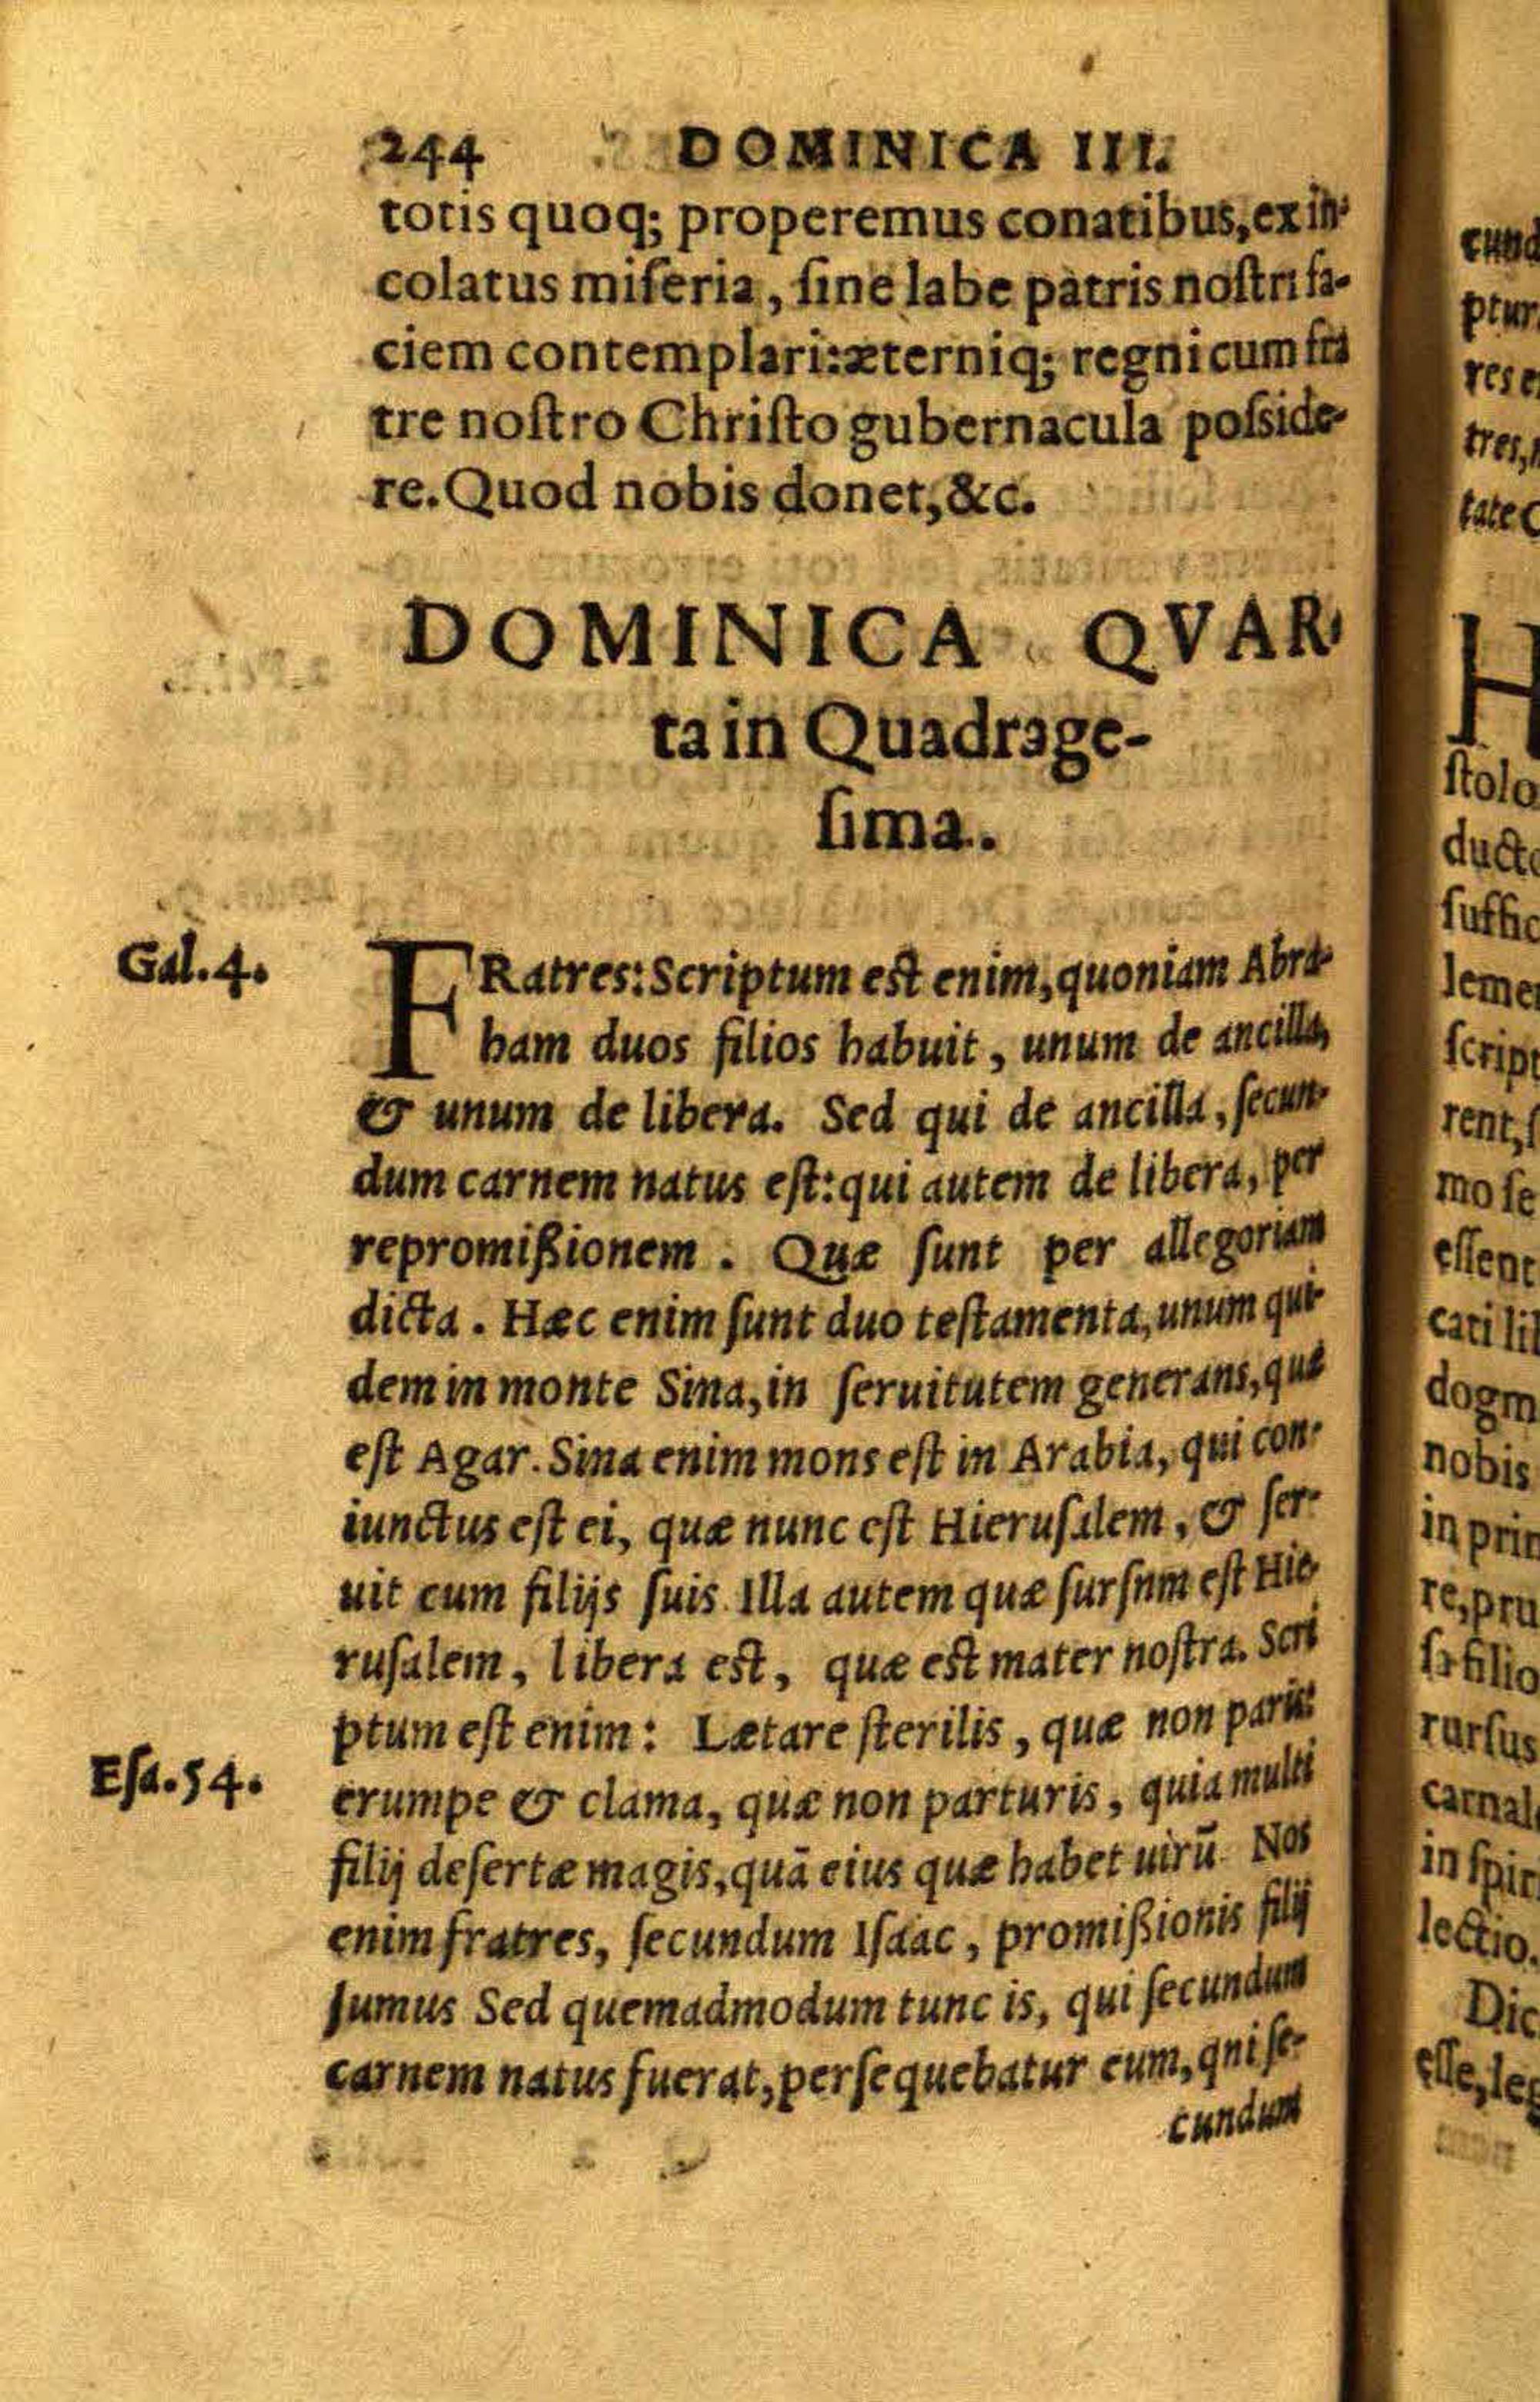 244 DOMINICA III.
totis quoq; properemus conatibus, ex in-
colatus miſeria, ſine labe patris noſtri fa-
ciem contemplari: æterniq; regni cum fra
tre noſtro Chriſto gubernacula poſside-
re. Quod nobis donet, &c.
DOMINICA QVAR-
ta in Quadrage-
ſima.
Gal. 4.
FRatres: Scriptum est enim, quoniam Abra-
ham duos filios habuit, unum de ancilla,
& unum de libera. Sed qui de ancilla, ſecun-
dum carnem natus eſt: qui autem de libera, per
repromißionem. Quæ ſunt per allegoriam
dicta. Hæc enim ſunt duo teſtamenta, unum qui-
dem in monte Sina, in ſeruitutem generans, quæ
eſt Agar. Sina enim mons eſt in Arabia, qui con-
iunctus eſt ei, quæ nunc eſt Hieruſalem, & ſer-
uit cum filijs ſuis. Illa autem quæ ſurſnm eſt Hie-
ruſalem, libera est, quæ est mater noſtra. Scri
ptum eſt enim: Lætare ſterilis, quæ non paris:
Eſa. 54.
erumpe & clama, quæ non parturis, quia multi
filij deſertæ magis, quā eius quæ habet uirū. Nos
enim fratres, ſecundum Iſaac, promißionis filij
ſumus Sed quemadmodum tunc is, qui ſecundum
carnem natus fuerat, perſequebatur eum, qni ſe-
cundum
cund
ptur
res e
tres,
tate
H
ſtolo
ducto
ſuffic
leme
ſcript
rent, ſ
mo ſe
eſſent
cati li
dogm
nobis
in prin
re, pru
ſa filio
rurſus
carnal
in ſpir
lectio.
Dic
eſſe, leg